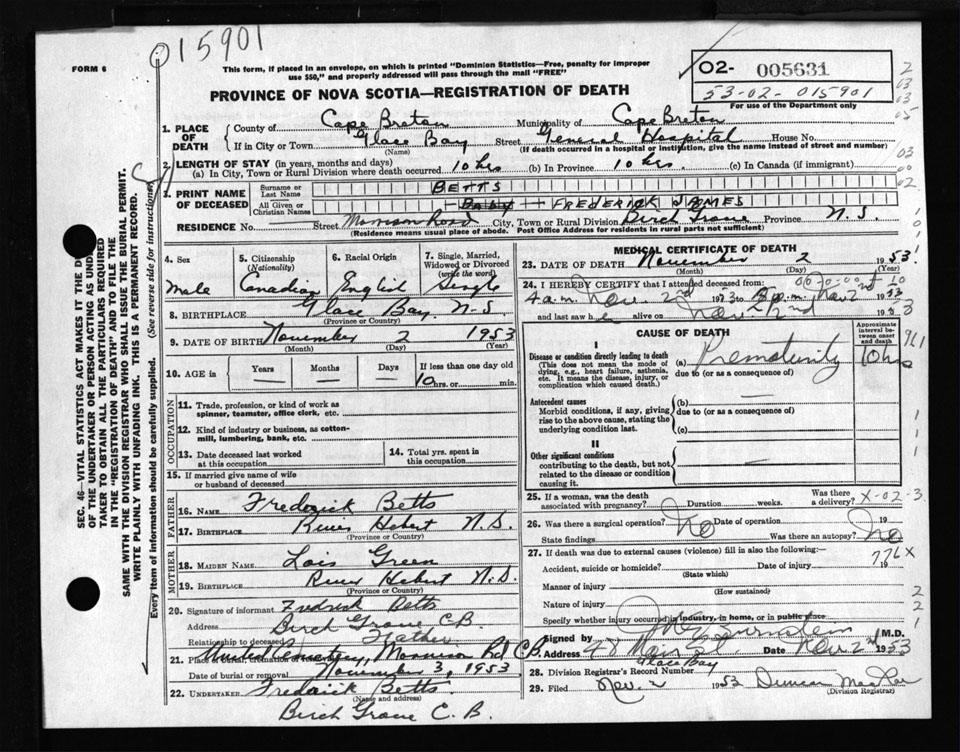 015901
FORM 6
This form, if placed in an envelope, on which is printed "Dominion Statistics—Free, penalty for improper
use $50," and properly addressed will pass through the mail "FREE"
02- 005631
53-02-015901
For use of the Department only
PROVINCE OF NOVA SCOTIA—REGISTRATION OF DEATH
1. PLACE OF DEATH
County of Cape Breton Municipality of Cape Breton
If in City or Town Glace Bay Street General Hospital House No.
(Name) (If death occurred in a hospital or institution, give the name instead of street and number)
2. LENGTH OF STAY (in years, months and days)
(a) In City, Town or Rural Division where death occurred 10 hrs (b) In Province 10 hrs. (c) In Canada (if immigrant)
3. PRINT NAME OF DECEASED
Surname or Last Name BETTS
All Given or Christian Names BABY FREDERICK JAMES
RESIDENCE No. — Street Morrison Road City, Town or Rural Division Birch Grove Province N.S.
(Residence means usual place of abode. Post Office Address for residents in rural parts not sufficient)
4. Sex Male
5. Citizenship (Nationality) Canadian
6. Racial Origin English
7. Single, Married, Widowed or Divorced (write the word) Single
8. BIRTHPLACE Glace Bay, N.S.
(Province or Country)
9. DATE OF BIRTH November 2 1953
(Month) (Day) (Year)
10. AGE in Years Months Days If less than one day old
10 hrs. or min.
OCCUPATION
11. Trade, profession, or kind of work as
spinner, teamster, office clerk, etc.
12. Kind of industry or business, as cotton-
mill, lumbering, bank, etc.
13. Date deceased last worked
at this occupation
14. Total yrs. spent in
this occupation
15. If married give name of wife
or husband of deceased
FATHER
16. NAME Frederick Betts
17. BIRTHPLACE River Hebert N.S.
(Province or Country)
MOTHER
18. MAIDEN NAME Lois Green
19. BIRTHPLACE River Hebert N.S.
(Province or Country)
20. Signature of informant Fredrick Betts
Address Birch Grove C.B.
Relationship to deceased Father
21. Place of burial, cremation or removal United Cemetery, Morrison Rd C.B.
Date of burial or removal November 3, 1953
22. UNDERTAKER Frederick Betts
(Name and address)
Birch Grove C.B.
MEDICAL CERTIFICATE OF DEATH
23. DATE OF DEATH November 2 1953
(Month) (Day)
24. I HEREBY CERTIFY that I attended deceased from:
4 a.m. Nov. 2nd 1953 to p.m. Nov 2nd 1953
and last saw h alive on Nov 2nd
CAUSE OF DEATH
Approximate interval between onset and death
I
Disease or condition directly leading to death
(This does not mean the mode of
dying, e.g., heart failure, asthenia,
etc. It means the disease, injury, or
complication which caused death.)
(a) Prematurity 10 hrs
due to (or as a consequence of)
Antecedent causes
Morbid conditions, if any, giving
rise to the above cause, stating the
underlying condition last.
(b) —
due to (or as a consequence of)
(c)
II
Other significant conditions
contributing to the death, but not
related to the disease or condition
causing it. —
25. If a woman, was the death
associated with pregnancy? Duration weeks. Was there a delivery? X-02-3
26. Was there a surgical operation? No Date of operation 19
State findings Was there an autopsy? No
27. If death was due to external causes (violence) fill in also the following:—
776X
Accident, suicide or homicide? Date of injury 19
(State which)
Manner of injury
(How sustained)
Nature of injury
Specify whether injury occurred in industry, in home, or in public place
Signed by M.D.
Address 48 Main St. Date Nov. 2nd 1953
Glace Bay
28. Division Registrar's Record Number
29. Filed Nov. 2 1953 Duncan
(Division Registrar)
SEC. 46—VITAL STATISTICS ACT MAKES IT THE
OF THE UNDERTAKER OR PERSON ACTING AS
TAKER TO OBTAIN ALL THE PARTICULARS REQUIRED
IN THE "REGISTRATION OF DEATH" AND TO FILE THE
SAME WITH THE DIVISION REGISTRAR WHO SHALL ISSUE THE BURIAL PERMIT.
WRITE PLAINLY WITH UNFADING INK. THIS IS A PERMANENT RECORD.
Every item of information should be carefully supplied. (See reverse side for instructions)